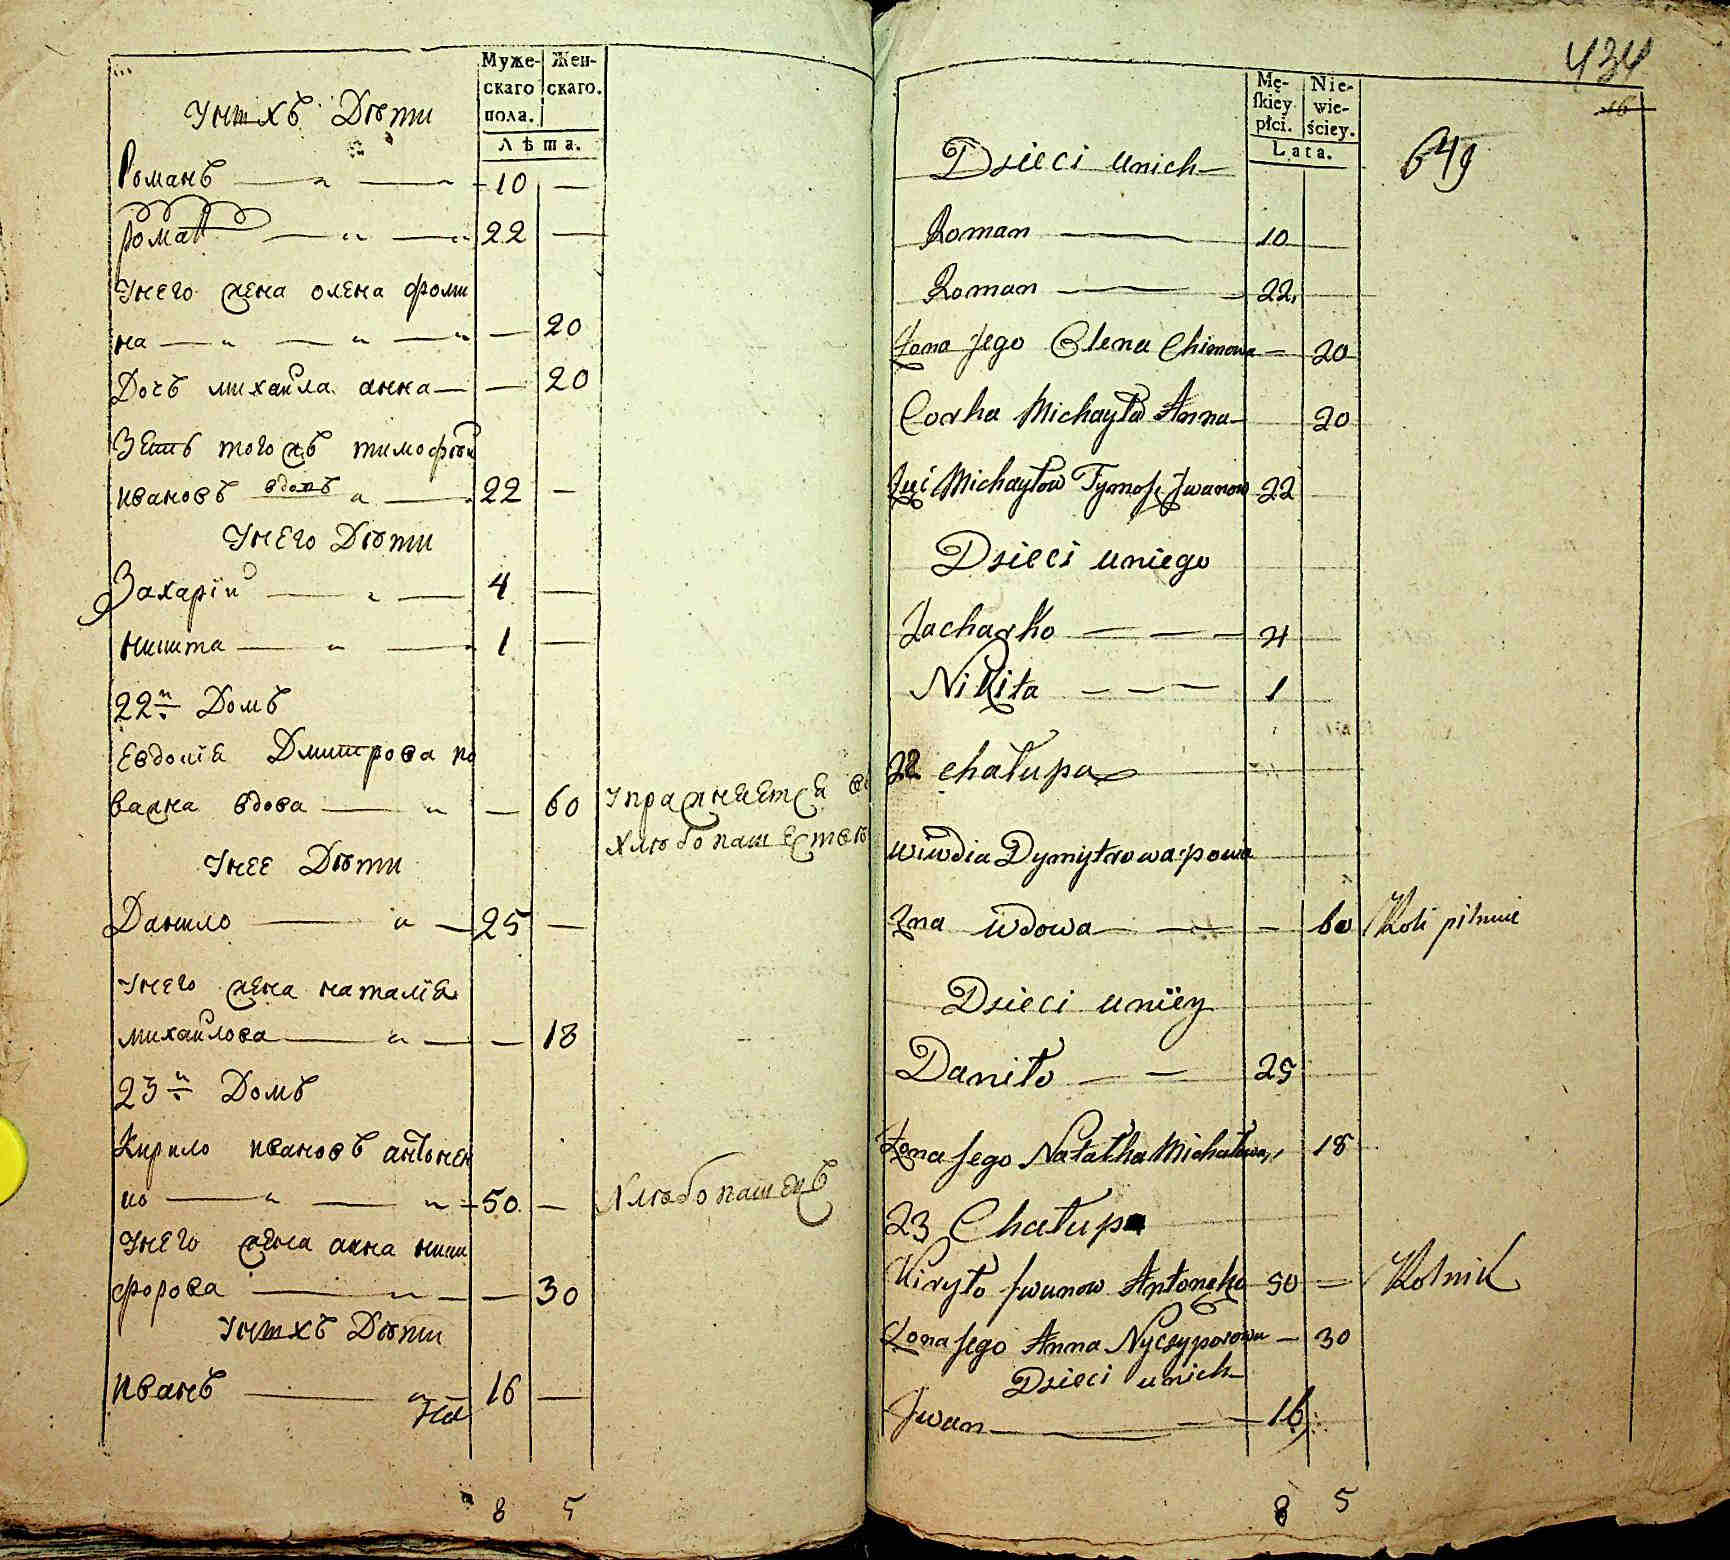 Муже- Жен-
скаго скаго.
пола.
Лѣта.
Унихъ Дѣти
Романъ — 10 —
Романъ — 22 —
Унего жена олена фоми
на — — 20
Дочъ михайла анна — — 20
Зеть тогожъ тимофѣй
ивановъ вдовъ — 22 —
Унего Дѣти
Захарій — 4 —
никита — 1 —
22й Домъ
Евдокія Дмитрова по
важна вдова — — 60 упражняется въ
хлѣбопашествѣ
Унее Дѣти
Данило — 25 —
Унего жена наталія
михайлова — — 18
23й Домъ
Кирило ивановъ антонен
ко — 50 — Хлѣбопашецъ
Унего жена анна ники
форова — — 30
Унихъ Дѣти
иванъ — 16 —
8 5
434
16
649
Mę- Nie-
skiey wie-
płci. ściey.
Lata.
Dzieci unich
Roman — 10
Roman — 22
Żona Jego Olena Chimowa — 20
Corka Michayła Anna — 20
Zięć Michayłow Tymofi Jwanow 22
Dzieci uniego
Zacharko — 4
Nikita — 1
22 chałupa
Wiwdia Dymytrowa powa
żna wdowa — — 60 Roli pilnuie
Dzieci uniey
Daniło — 25
Żona Jego Natałka Michałowa 18
23 Chałupa
Kiryło Jwanow Antoneko 50 — Rolnik
Żona Jego Anna Nyczyporowa — 30
Dzieci unich
Jwan — 16
8 5